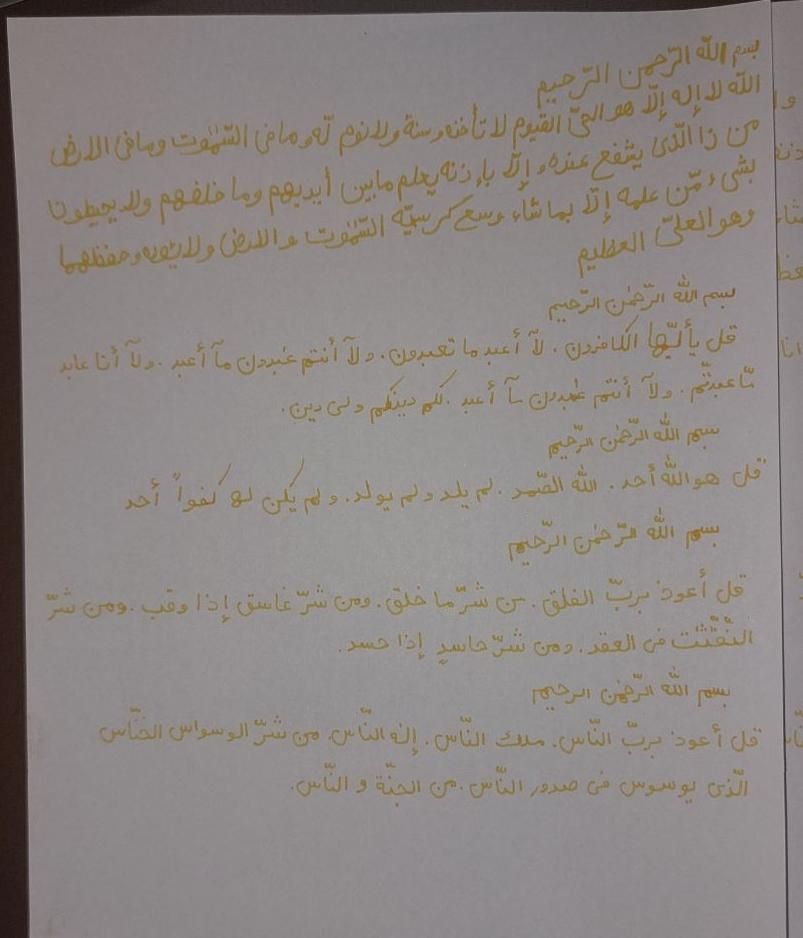 بسم اللّه الرّحمن الرّحيم
اللّه لا إله إلّا هو الحىّ القيوم لا تأخذه وسنة ولا نوم لّه وما فى السّمٰوٰت وما فى الارض
من ذا الّذى يشفع عنده و إلّا بإذنه يعلم ما بين أيديهم وما خلفهم ولا يحيطون
بشىء مّن علمه إلّا بما شاء وسع كرسيّه السّمٰوٰت والارض ولا يئوده و حفظهما
وهو العلىّ العظيم
بسم اللّه الرّحمٰن الرّحيم
قل يأيّها الكافرون . لآ أعبد ما تعبدون . ولآ أنتم عٰبدون مآ أعبد . ولآ أنا عابد
مّا عبدتّم . ولآ أنتم عٰبدون مآ أعبد . لكم دينكم ولى دين .
بسم اللّه الرّحمٰن الرّحيم
قل هو اللّه أحد . اللّه الصّمد . لم يلد ولم يولد . ولم يكن له كفواً أحد
بسم اللّه الرّحمٰن الرّحيم
قل أعوذ بربّ الفلق . من شرّ ما خلق . ومن شرّ غاسق إذا وقب . ومن شرّ
النّفّٰثٰت فى العقد . ومن شرّ حاسدٍ إذا حسد .
بسم اللّه الرّحمٰن الرحيم
قل أعوذ بربّ النّاس . ملك النّاس . إله النّاس . من شرّ الوسواس الخنّاس
الّذى يوسوس فى صدور النّاس . من الجنّة و النّاس .